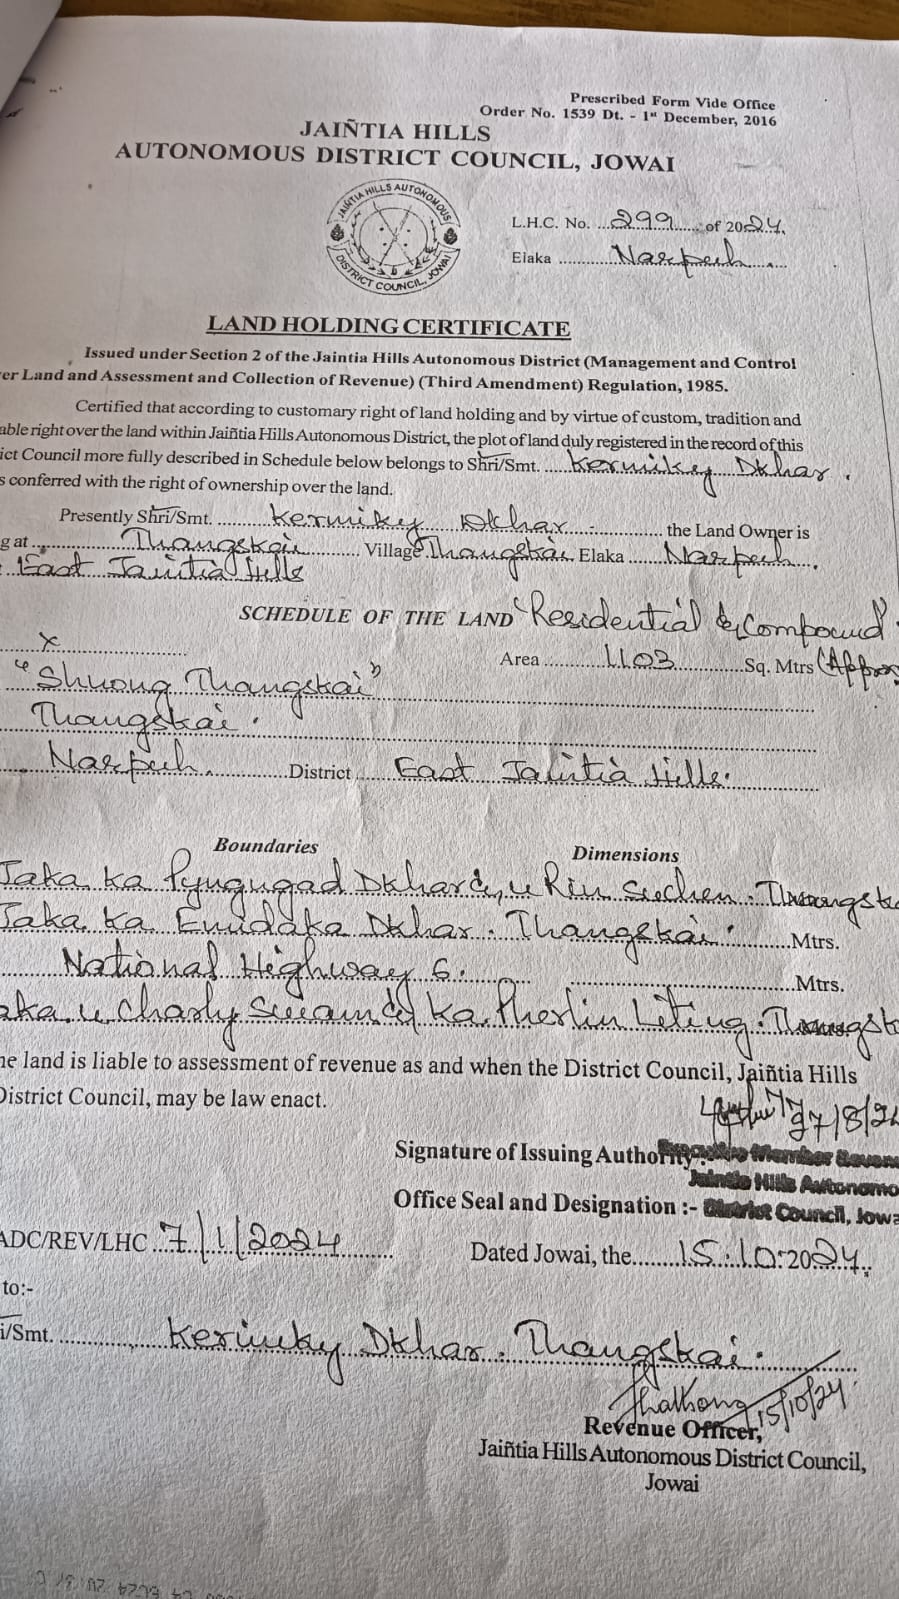 Prescribed Form Vide Office
Order No. 1539 Dt. - 1st December, 2016
JAIÑTIA HILLS
AUTONOMOUS DISTRICT COUNCIL, JOWAI
JAIÑTIA HILLS AUTONOMOUS
DISTRICT COUNCIL, JOWAI
L.H.C. No. ...299... of 2024.
Elaka ...Narpuh...
LAND HOLDING CERTIFICATE
Issued under Section 2 of the Jaintia Hills Autonomous District (Management and Control
er Land and Assessment and Collection of Revenue) (Third Amendment) Regulation, 1985.
Certified that according to customary right of land holding and by virtue of custom, tradition and
able right over the land within Jaiñtia Hills Autonomous District, the plot of land duly registered in the record of this
ict Council more fully described in Schedule below belongs to Shri/Smt. ....Kermikey Dkhar.
s conferred with the right of ownership over the land.
Presently Shri/Smt. ...Kermikey Dkhar... the Land Owner is
g at ...Thangskai... Village Thangskai Elaka ...Narpuh...
East Jaiñtia Hills
SCHEDULE OF THE LAND "Residential & Compound"
x
Area ...1103... Sq. Mtrs (Approx
"Shnong Thangskai"
Thangskai.
Narpuh District East Jaiñtia Hills.
Boundaries Dimensions
Jaka ka Dkhar & u Rin Suchen. Thangska
Jaka ka Dkhar. Thangskai. Mtrs.
National Highway 6. Mtrs.
aka u Charly & Ka Pherlin Thangsk
he land is liable to assessment of revenue as and when the District Council, Jaiñtia Hills
District Council, may be law enact.
27/8/24
Signature of Issuing Authority :- Executive Member Reven
Jaintia Hills Autonomo
Office Seal and Designation :- District Council, Jowa
ADC/REV/LHC 7/1/2024 Dated Jowai, the 15.10.2024.
to:-
i/Smt. Kermiky Dkhar. Thangskai.
15/10/24
Revenue Officer,
Jaiñtia Hills Autonomous District Council,
Jowai